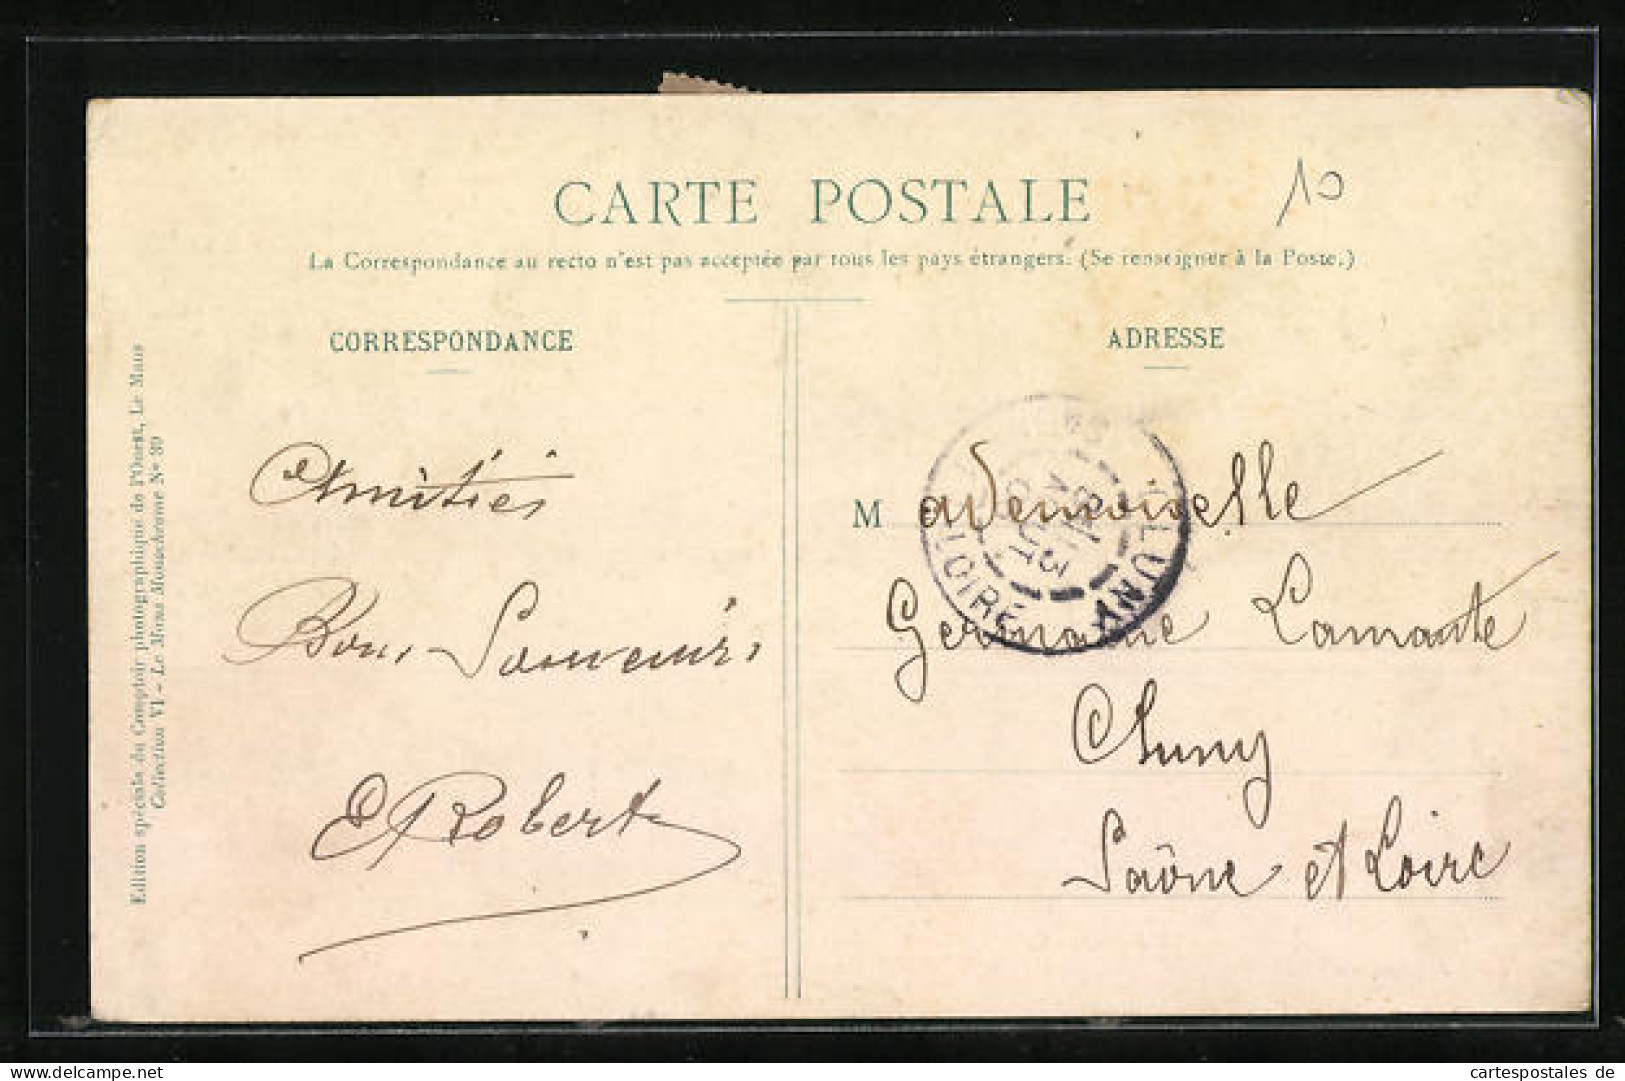 CARTE POSTALE
10
La Correspondance au recto n'est pas acceptée par tous les pays étrangers. (Se renseigner à la Poste.)
CORRESPONDANCE
Amitiés
Bons Souvenirs
E Robert
ADRESSE
Mademoiselle
Germaine Lamante
Cluny
Saône et Loire
CLUNY
LOIRE
Edition spéciale du Comptoir photographique de l'Ouest, Le Mans
Collection VI - Le Mans Monochrome N° 39
cartespostales de